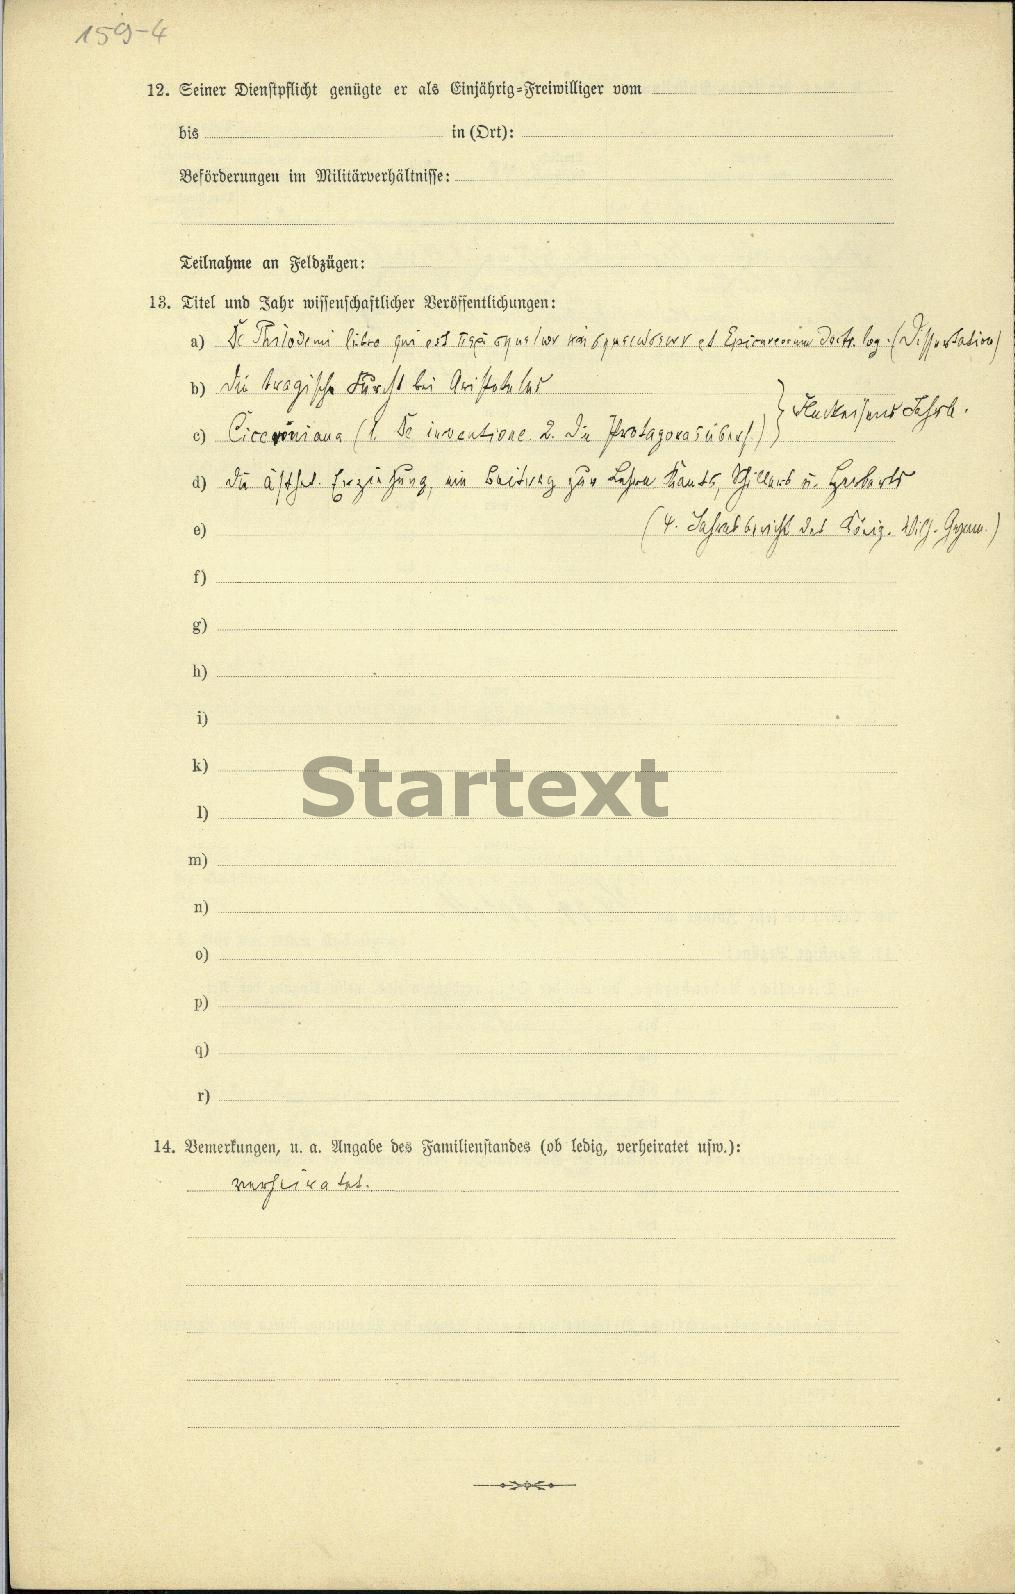 159-4
12. Seiner Dienstpflicht genügte er als Einjährig-Freiwilliger vom
bis in (Ort):
Beförderungen im Militärverhältnisse:
Teilnahme an Feldzügen:
13. Titel und Jahr wissenschaftlicher Veröffentlichungen:
a) De Philodemi libro qui est περὶ σημείων καὶ σημειώσεων et Epicureorum doctr. log. (Dissertation)
b) Die tragische Furcht bei Aristoteles
} Fleckeisens Jahrb.
c) Ciceroniana (1. De inventione 2. Die Protagorasübers.)
d) Die ästhet. Erziehung, ein Beitrag zur Lehre Kants, Schillers u. Herbarts
e) (4. Jahresbericht des König. Wilh. Gymn.)
f)
g)
h)
i)
k)
Startext
l)
m)
n)
o)
p)
q)
r)
14. Bemerkungen, u. a. Angabe des Familienstandes (ob ledig, verheiratet usw.):
verheiratet.